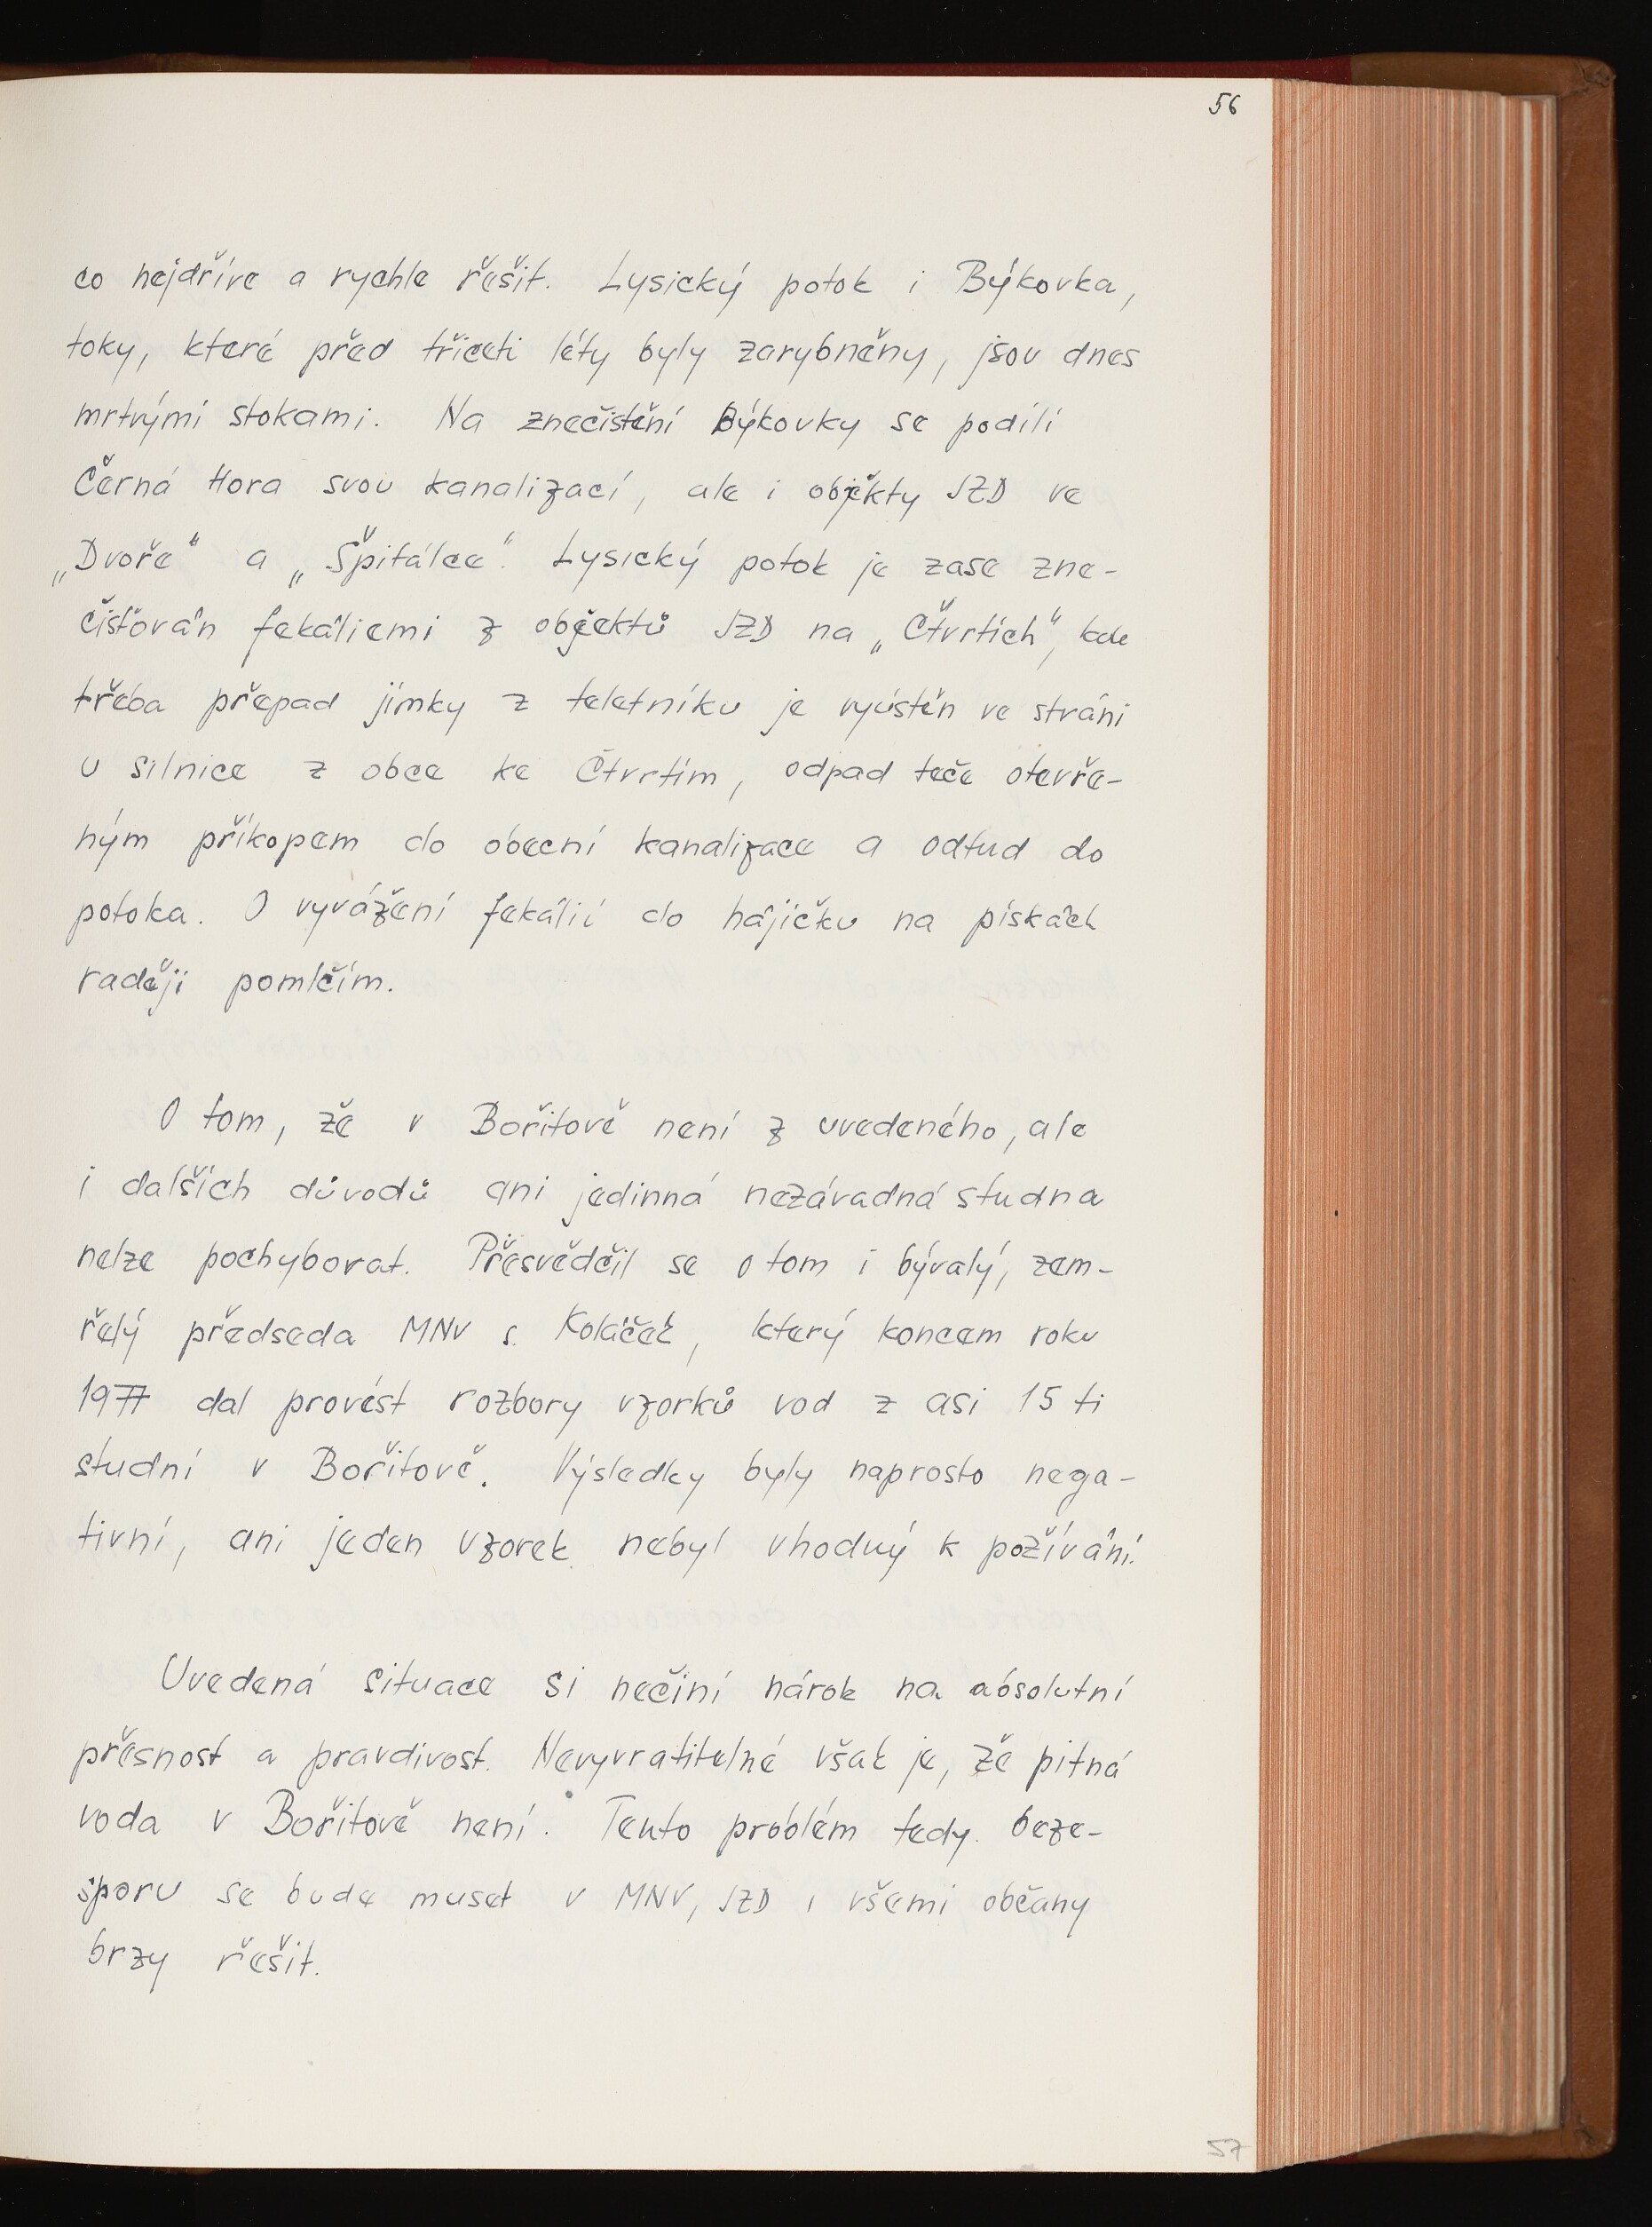 56
co nejdříve a rychle řešit. Lysický potok i Býkovka,
toky, které před třiceti léty byly zarybněny, jsou dnes
mrtvými stokami. Na znečistění Býkovky se podílí
Černá Hora svou kanalizací, ale i objekty JZD ve
„Dvoře" a „Špitálce". Lysický potok je zase zne-
čišťován fekáliemi z objektů JZD na „Čtvrtích", kde
třeba přepad jímky z teletníku je vyústěn ve stráni
u silnice z obce ke Čtvrtím, odpad teče otevře-
ným příkopem do obecní kanalizace a odtud do
potoka. O vyvážení fekálií do hájíčku na pískách
raději pomlčím.
O tom, že v Bořitově není z uvedeného, ale
i dalších důvodů ani jedinná nezávadná studna
nelze pochybovat. Přesvědčil se o tom i bývalý, zem-
řelý předseda MNV s. Koláček, který koncem roku
1977 dal provést rozbory vzorků vod z asi 15 ti
studní v Bořitově. Výsledky byly naprosto nega-
tivní, ani jeden vzorek nebyl vhodný k požívání.
Uvedená situace si nečiní nárok na absolutní
přesnost a pravdivost. Nevyvratitelné však je, že pitná
voda v Bořitově není. Tento problém tedy beze-
sporu se bude muset v MNV, JZD i všemi občany
brzy řešit.
57